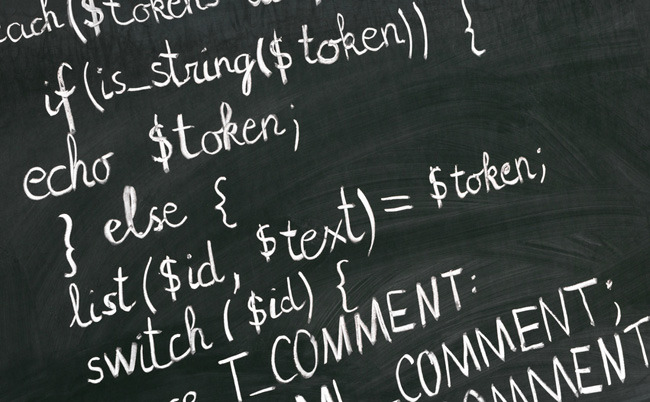 each($tokens
if(is_string($token)) {
echo $token;
} else {
list($id, $text)= $token;
switch ($id) {
T_COMMENT:
ML_COMMENT;
COMMENT